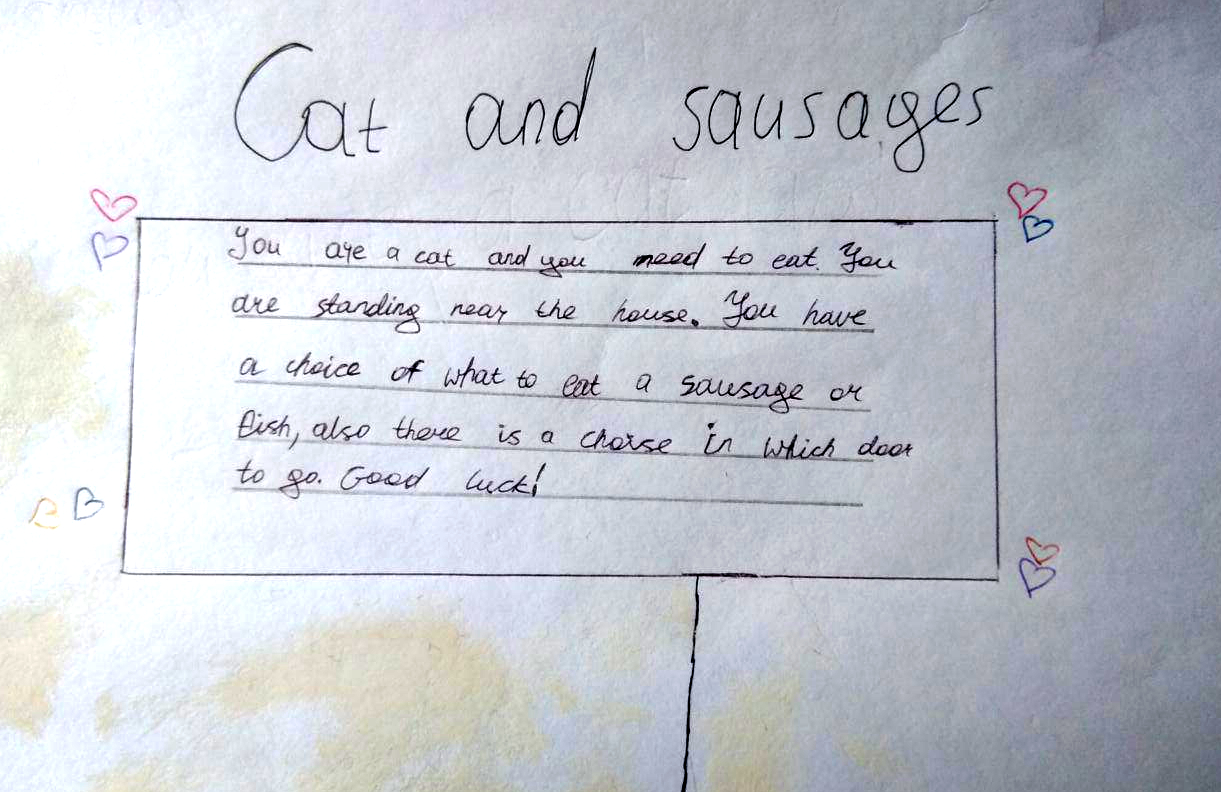 Cat and sausages
You are a cat and you need to eat. You
are standing near the house. You have
a choice of what to eat a sausage or
fish, also there is a choise in which door
to go. Good luck!